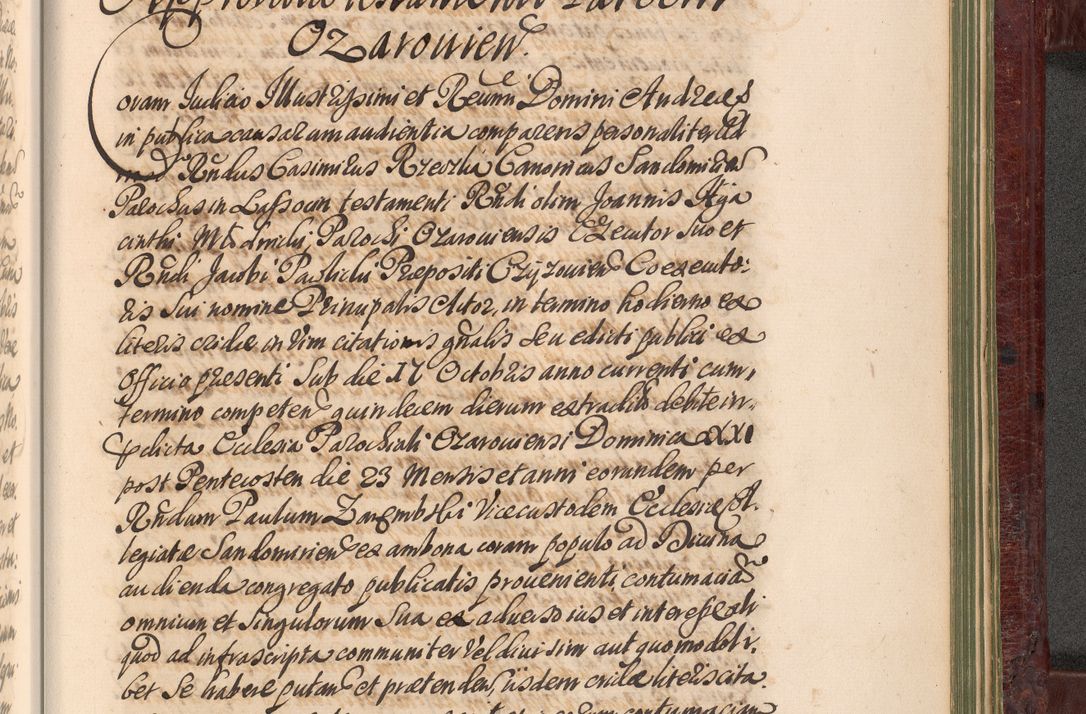 Approbatio testamenti Parochi
Ozarouien.
Coram Judicio Illustrissimi et Reũmi Domini Andreæ
in publica causarum audientia comparens personaliter Ad
mod Rñdus Casimirus Canonicus Sandomirien
Parochus in Lassoun testamenti Rñdi olim Joannis Hya
cinthi Parochi Ozarouiensis Executor suo et
Rñdi Jacobi Præpositi Czyzouien Coexecuto:
ris sui nomine Principalis Actor, in termino hodierno ex
literis cridæ in vim citationis gñalis seu edicti publici ex
officio presenti sub die 17 Octobris anno currenti cum,
termino competen quindecem dierum extraditis debite in,
prædicta Ecclesia Parochiali Ozarouiensi Dominica XXI
post Pentecosten die 23 Mensis et anni eorundem per
Rñdum Paulum Zarembski Vicecustodem Ecclesiæ Col
legiatæ Sandomirien ex ambona coram populo ad Diuina
audienda congregato publicatis prouenienti contumacia
omnium et singulorum sua ex aduerso ius et interesse ali
quod ad infrascripta communiter vel diuisim aut quomodoli,
bet se habere putan et prætenden, iisdem cridæ literis cita.